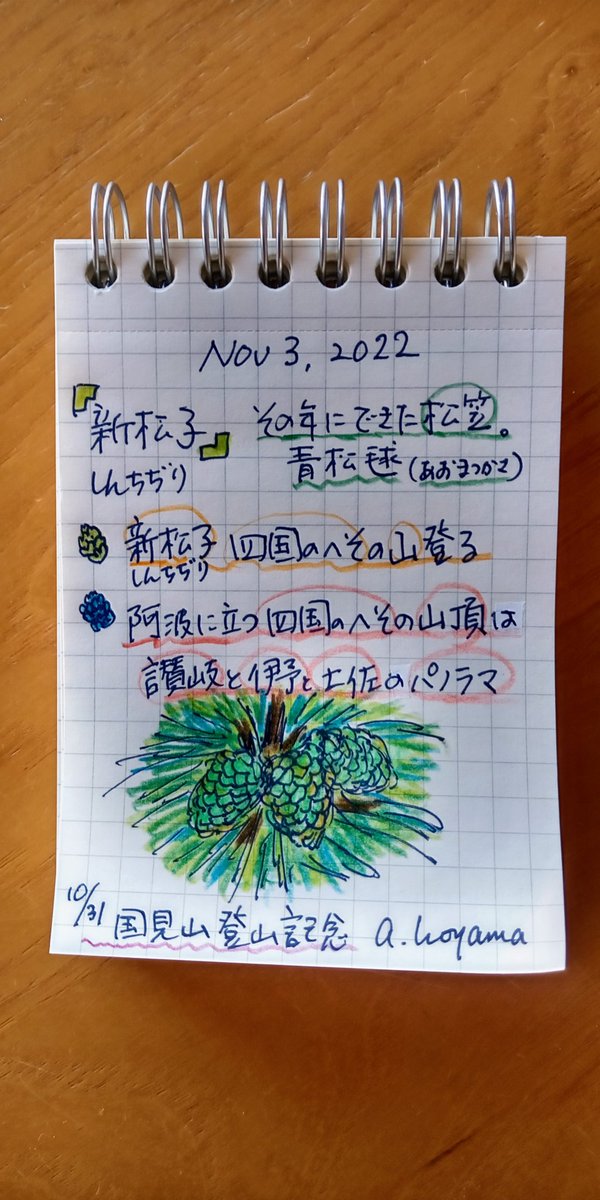 Nov 3, 2022
『新松子』 その年にできた松笠。
しんちぢり 青松毬(あおまつかさ)
新松子四国のへその山登る
しんちぢり
阿波に立つ四国のへその山頂は
讃岐と伊予と土佐のパノラマ
10/31 国見山登山記念 a.koyama